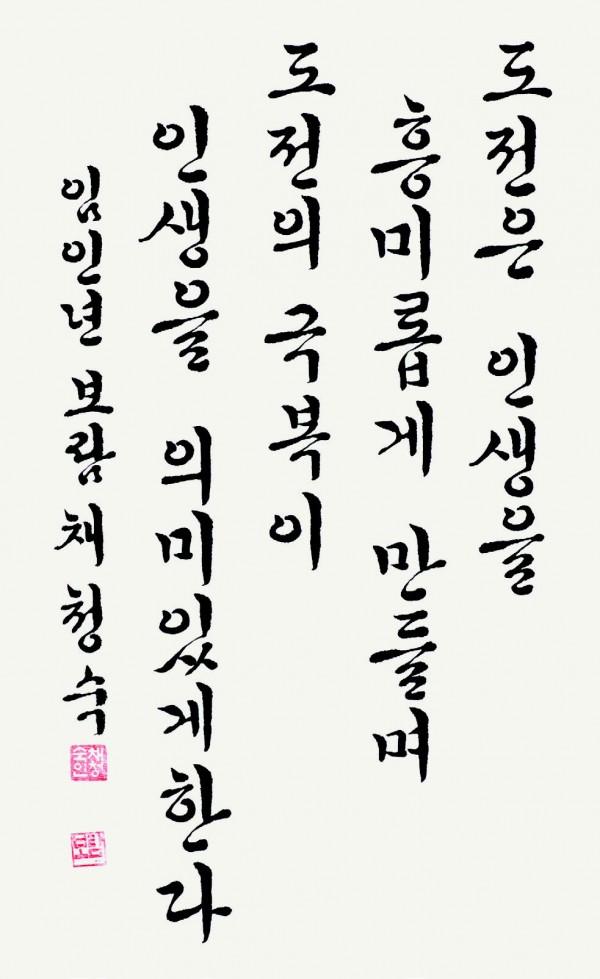 도전은 인생을
흥미롭게 만들며
도전의 극복이
인생을 의미있게한다
임인년 보람 채청숙
보람